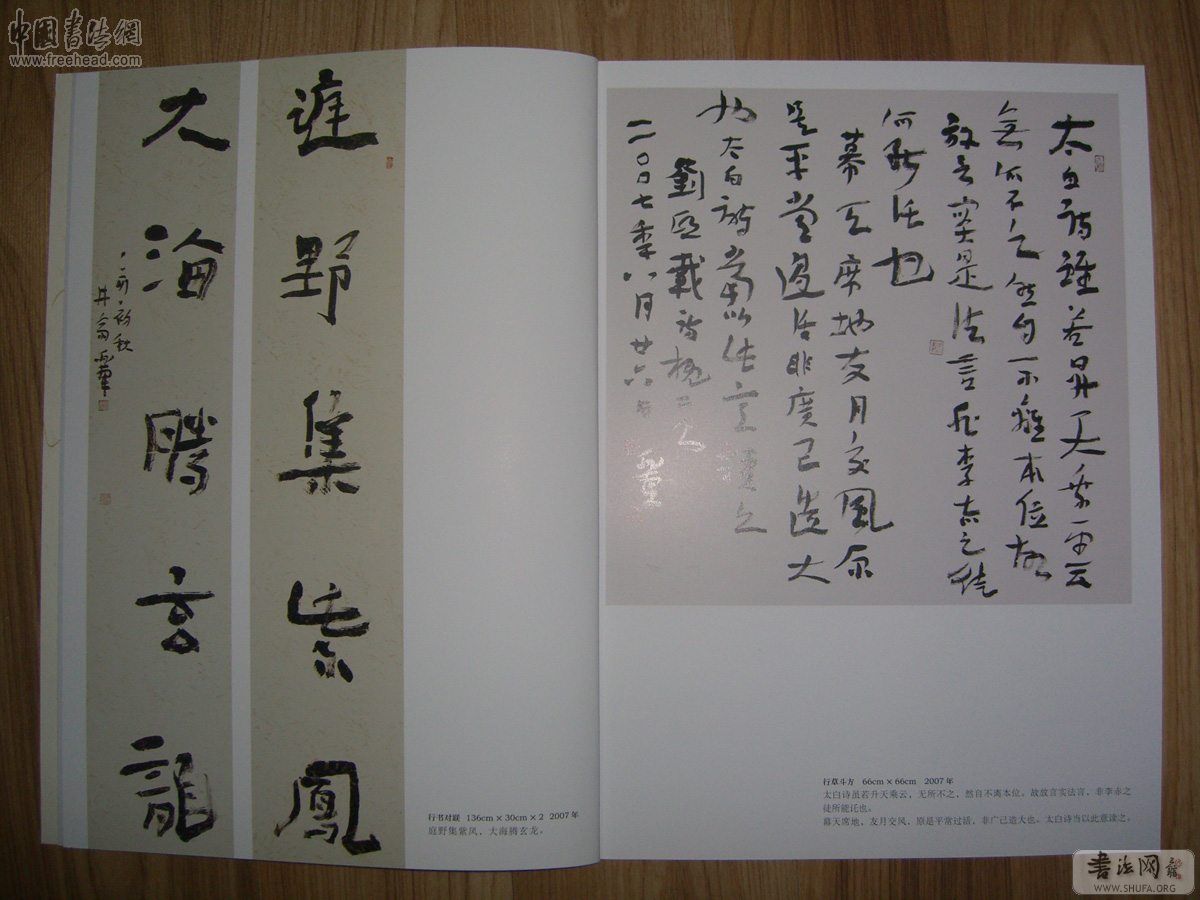 中国书法網
www.freehead.com
庭野集紫鳳
大海騰玄龍
行书对联 136cm × 30cm × 2 2007年
庭野集紫凤，大海腾玄龙。
太白詩雖若昇天乘雲
無所不之然自不離本位故
放言實是法言非李赤之徒
所能託也
幕天席地友月交風原
是平常過活非廣己造大
也太白詩當以此意讀之
劉熙載詩概一則
二〇〇七年八月廿六日
行草斗方 66cm × 66cm 2007年
太白诗虽若升天乘云，无所不之，然自不离本位。故放言实法言，非李赤之
徒所能讬也。
幕天席地，友月交风，原是平常过活，非广己造大也。太白诗当以此意读之。
书法网
WWW.SHUFA.ORG